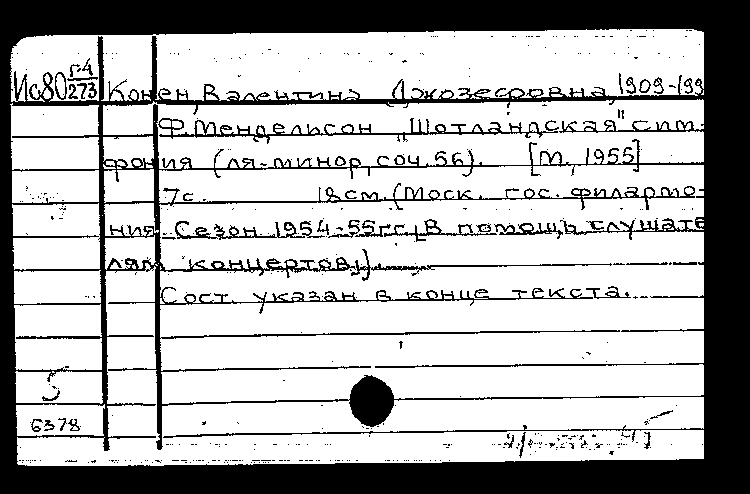 Ис80 г-4/273 Конен, Валентина Джозефовна, 1909-199
Ф.Мендельсон „Шотландская" сим-
фония (ля-минор, соч. 56). [М., 1955]
7с. 18см. (Моск. гос. филармо-
ния. Сезон 1954-55гг. В помощь слушате
лям концертов)
Сост. указан в конце текста.
5
6378